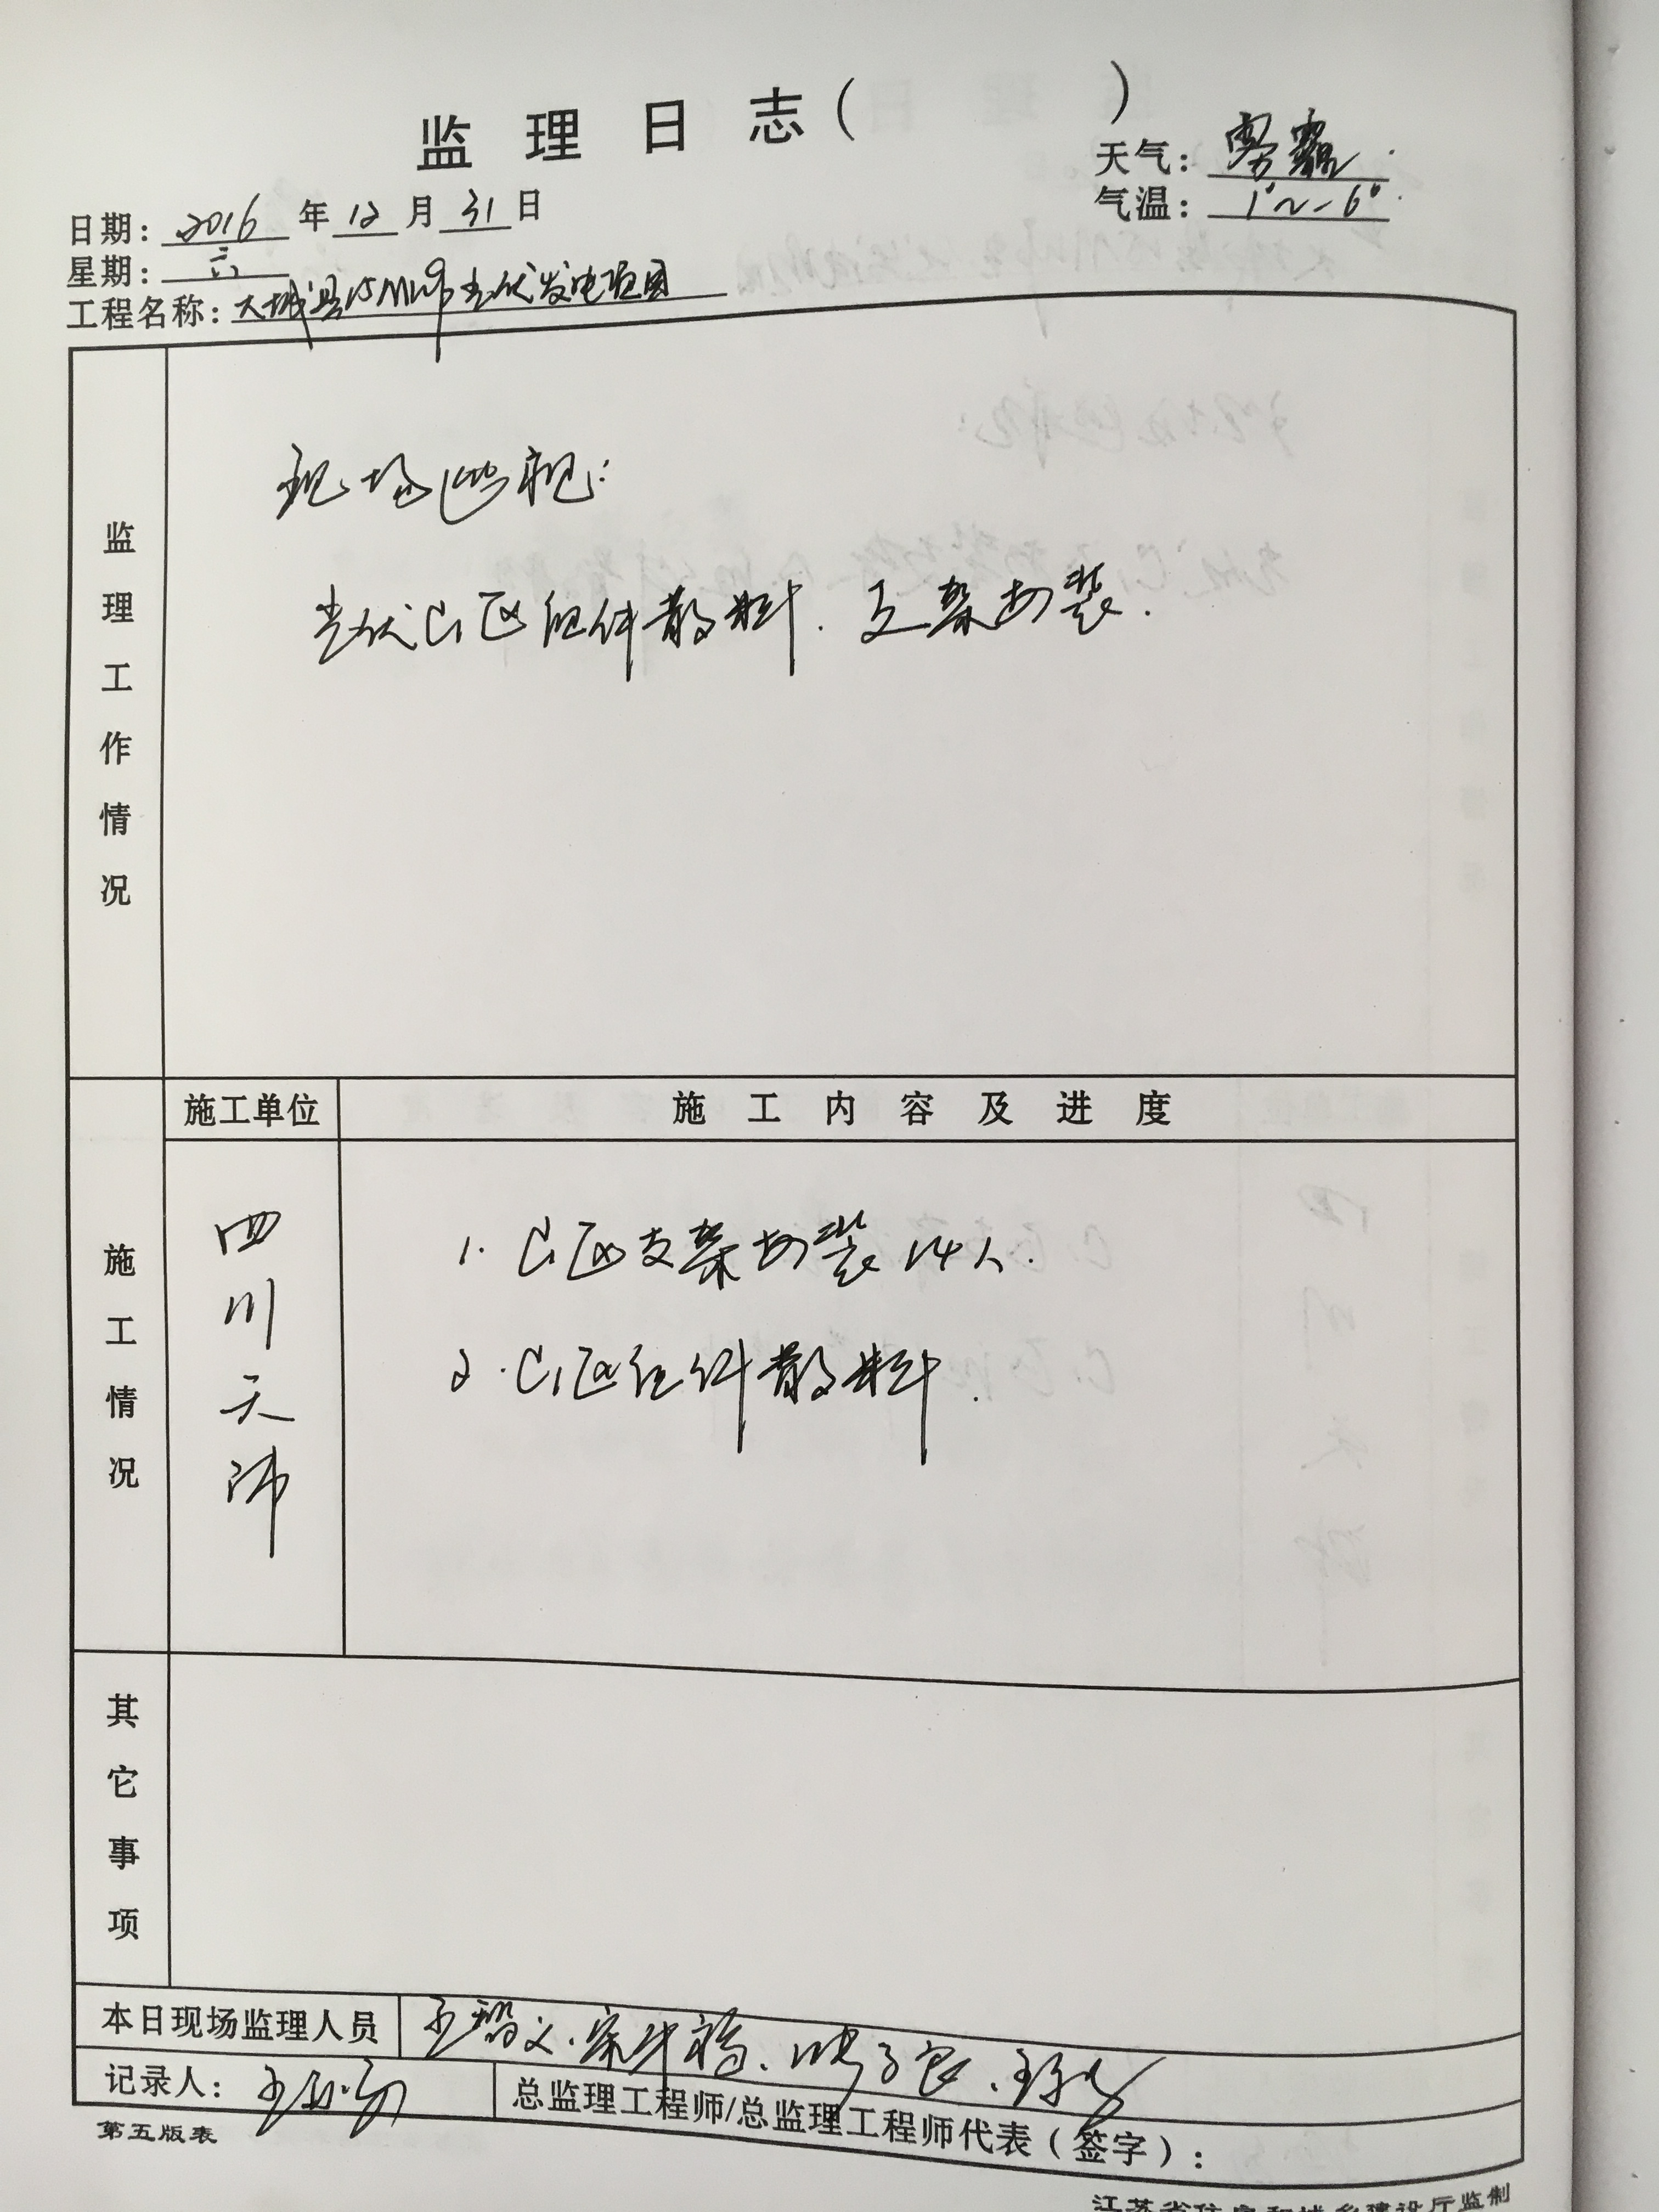 监理日志（ ）
天气：雾霾.
气温：1°~-6°.
日期：2016年12月31日
星期：六
工程名称：大城县15MW光伏发电项目
监理工作情况
现场巡视：
光伏C1区组件散料、支架安装.
施工单位 施工内容及进度
施工情况
四川天沛
1. C1区支架安装14人.
2. C1区组件散料.
其它事项
本日现场监理人员
记录人：
总监理工程师/总监理工程师代表（签字）：
第五版表
江苏省住房和城乡建设厅监制